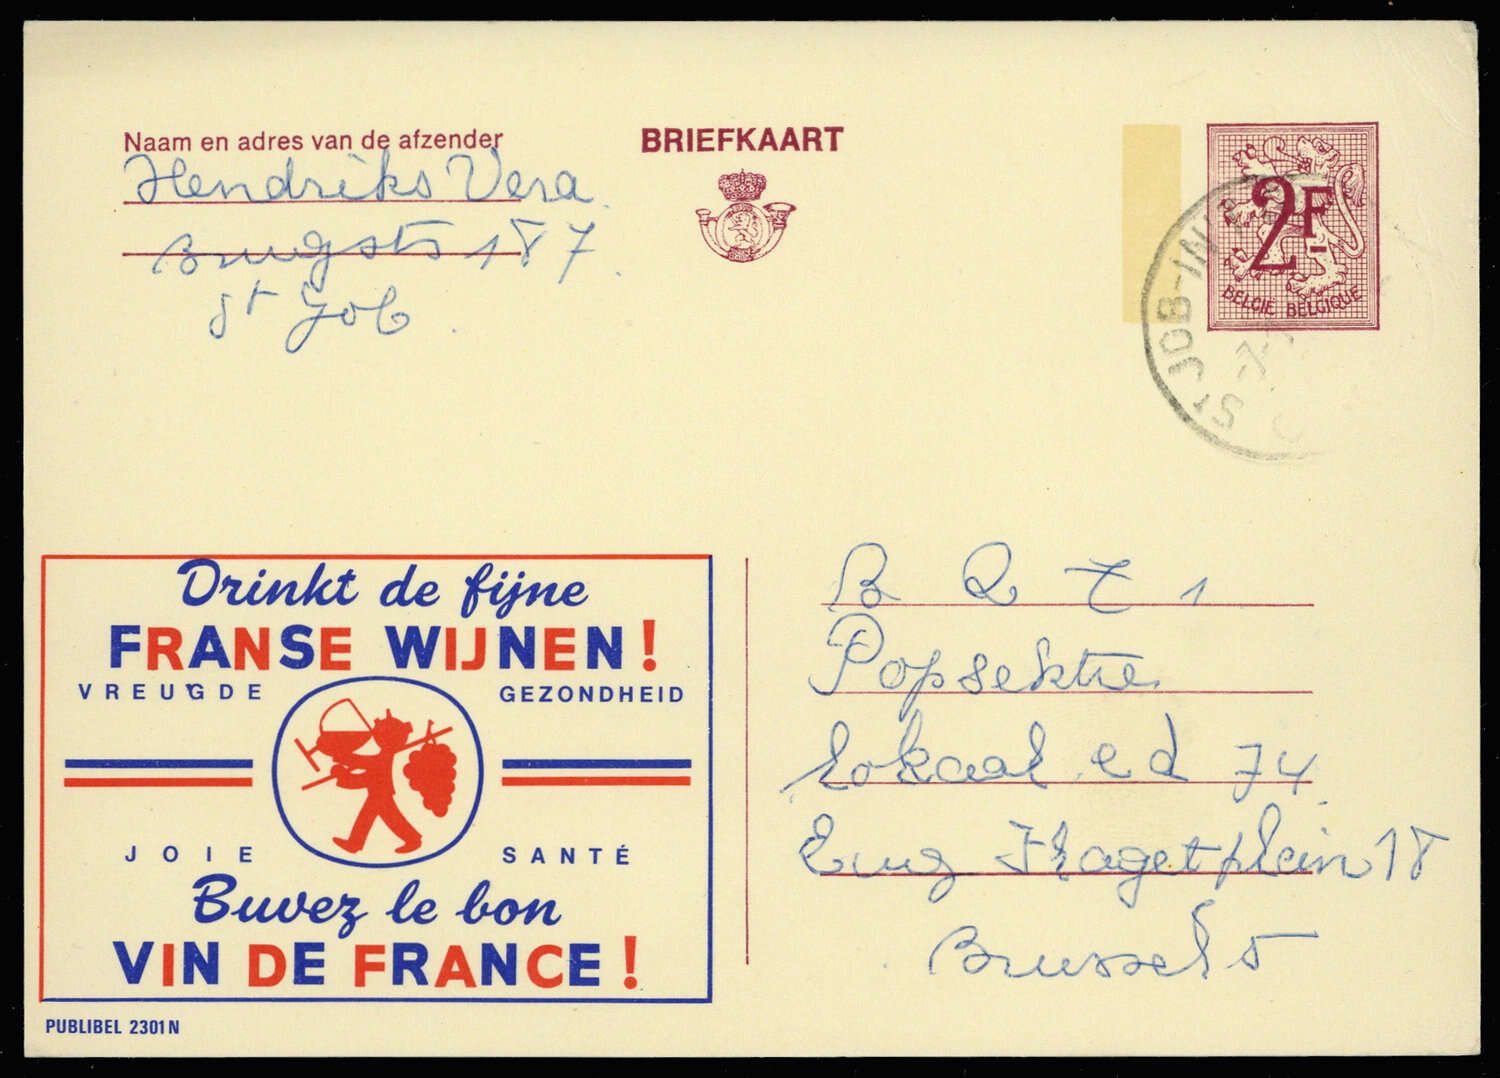 Naam en adres van de afzender
Hendriks Vera
Brugstr 187
St Job
BRIEFKAART
2F
BELGIE BELGIQUE
ST JOB-IN
Drinkt de fijne
FRANSE WIJNEN!
VREUGDE GEZONDHEID
JOIE SANTÉ
Buvez le bon
VIN DE FRANCE!
PUBLIBEL 2301 N
B R T 1
Popsektie
Lokaal ed 74
Eug Flageyplein 18
Brussel 5